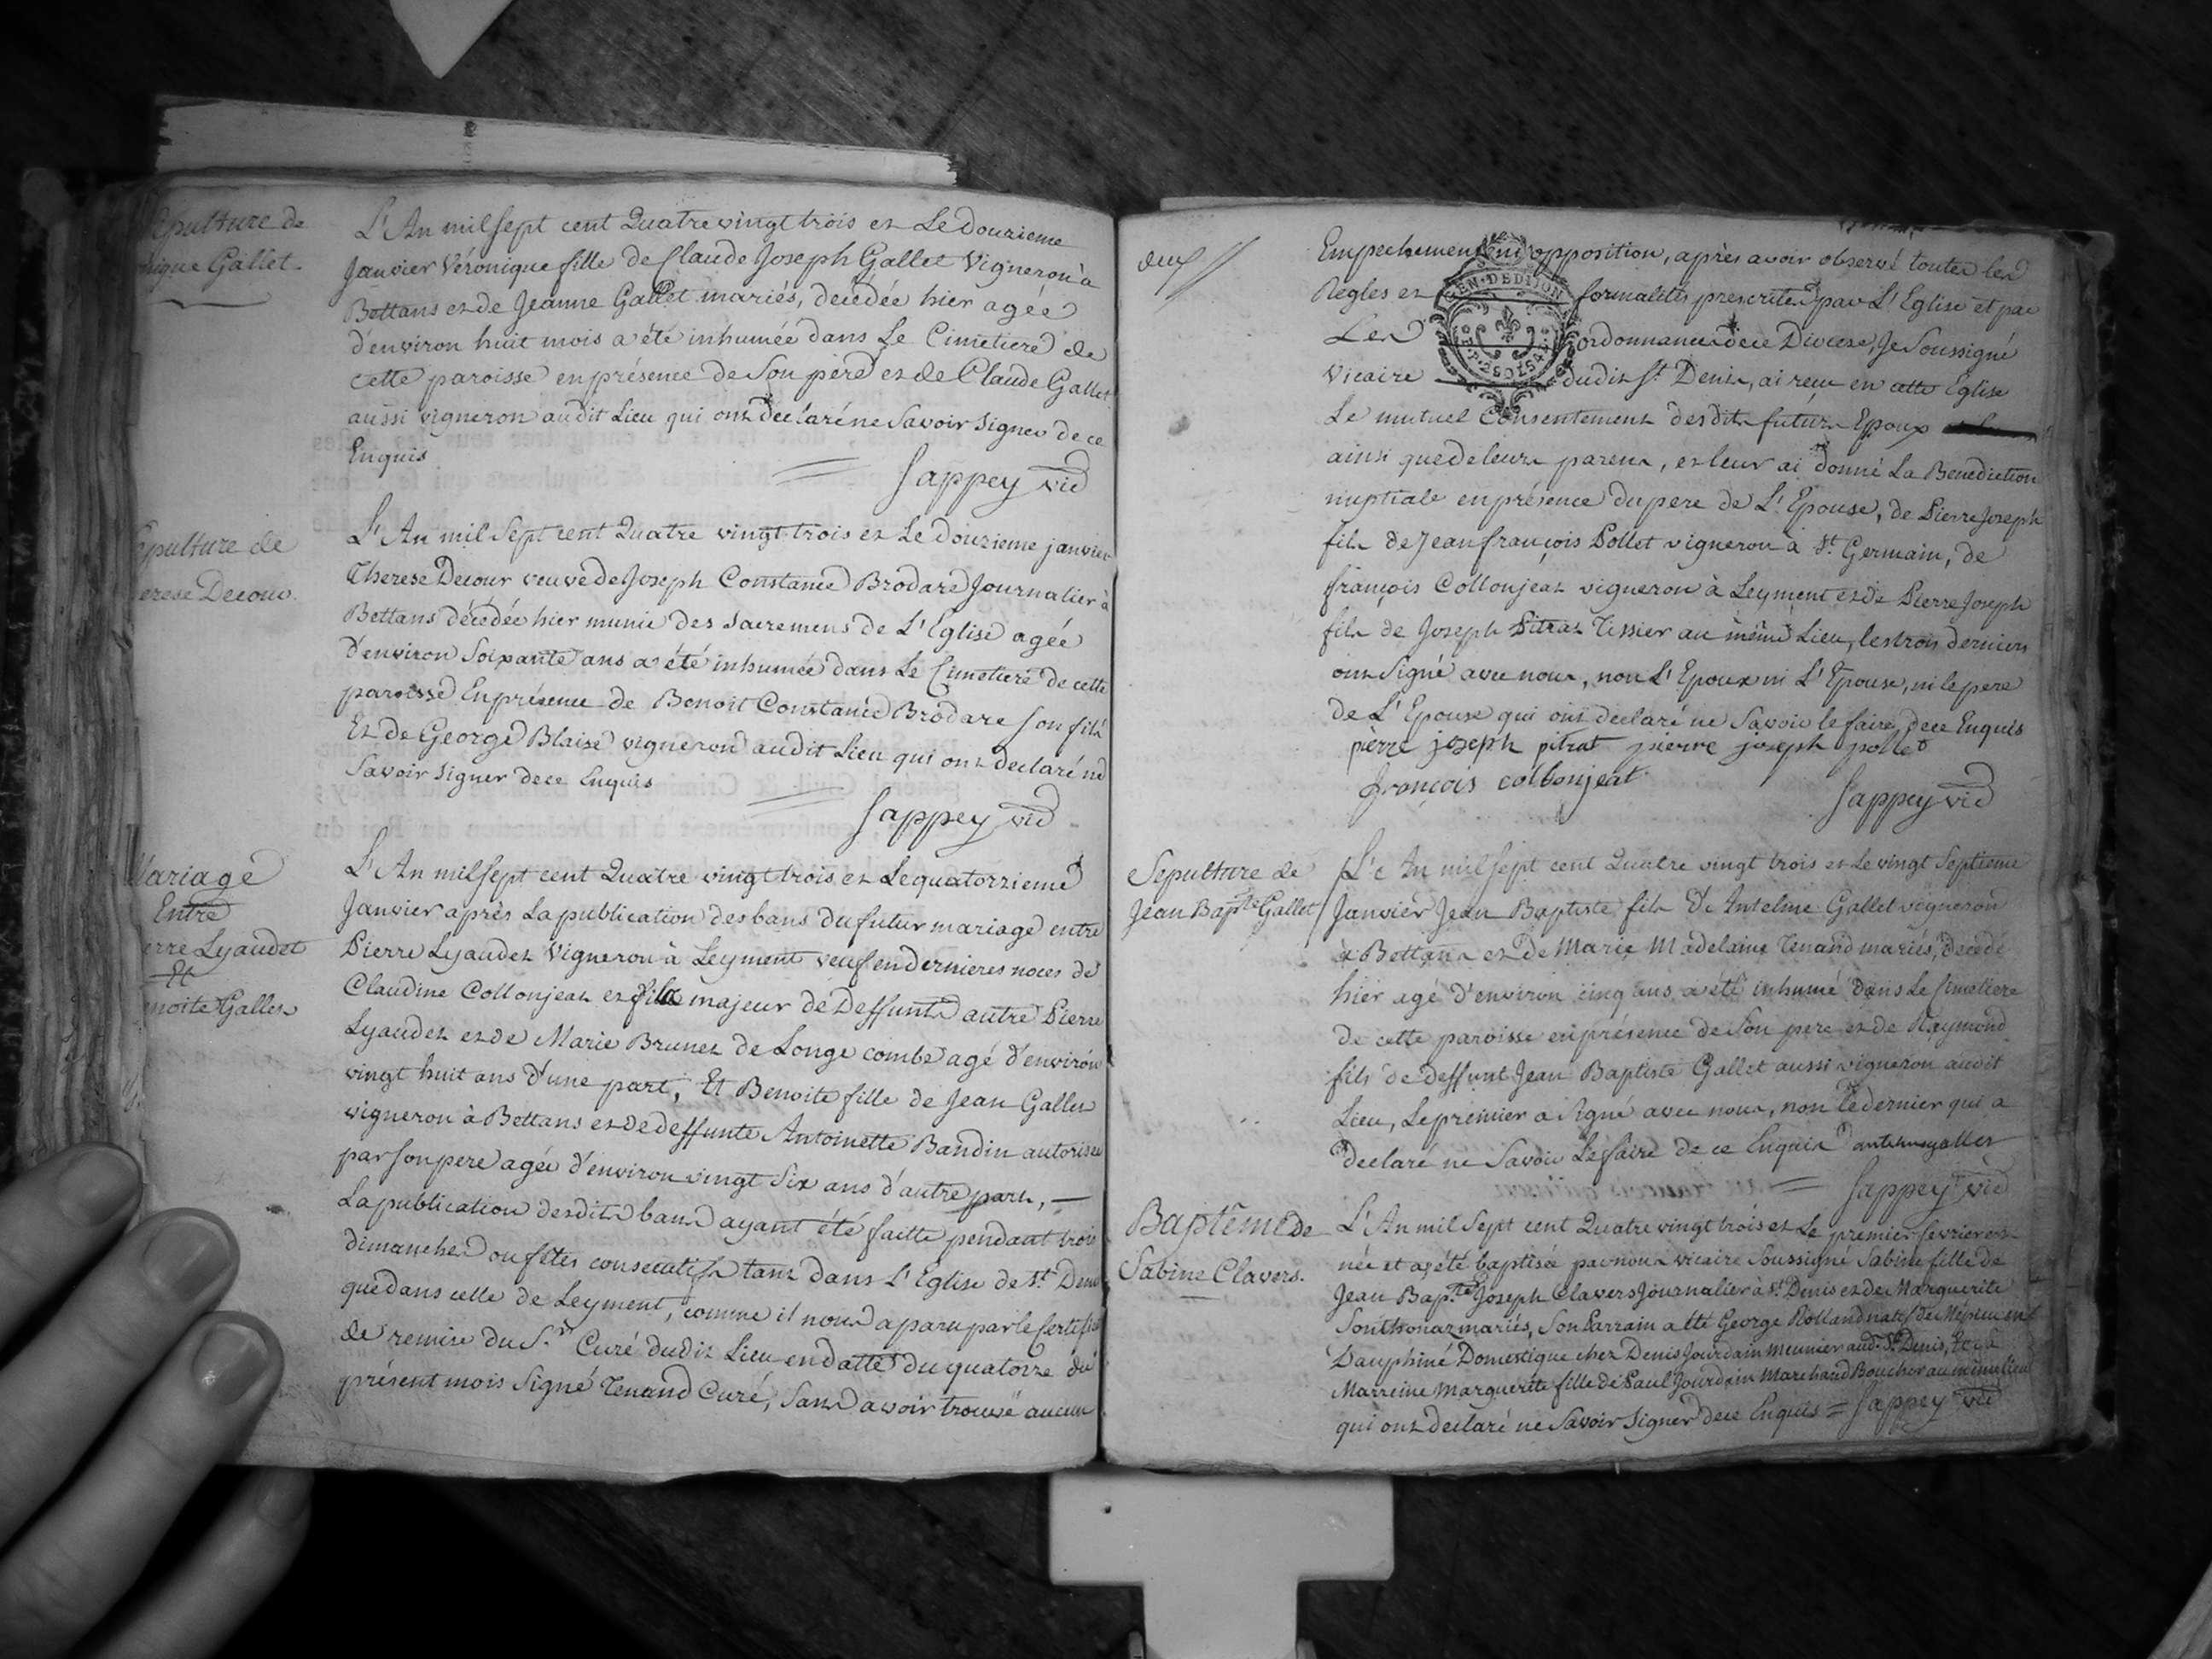 épulture de
nique Gallet
L'An mil sept cent Quatre vingt trois et Le Douzieme
Janvier Véronique fille de Claude Joseph Gallet Vigneron à
Bettans et de Jeanne Gallet mariés, decédée hier agée
d'environ huit mois a été inhumée dans Le Cimetiere de
cette paroisse en présence de Son père et de Claude Gallet
aussi vigneron audit Lieu qui ont declaré ne Savoir Signer de ce
Enquis
Sappey vic
épulture de
erese Decour
L'An mil Sept cent Quatre vingt trois et Le douzieme janvier
Therese Decour veuve de Joseph Constance Brodare Journalier à
Bettans décédée hier munie des Sacremens de L'Eglise agée
d'environ Soixante ans a été inhumée dans Le Cimetiere de cette
paroisse En présence de Benoit Constance Brodare son fils
Et de George Blaise vigneron audit Lieu qui ont declaré ne
Savoir Signer de ce Enquis
Sappey vic
Mariage
Entre
erre Lyaudet
Et
enoite Gallet
L'An mil sept cent Quatre vingt trois et Le quatorzieme
Janvier après La publication des bans du futur mariage entre
Pierre Lyaudet Vigneron à Leyment veuf en dernieres noces de
Claudine Collonjeat et fils majeur de Deffunts autre Pierre
Lyaudet et de Marie Brunet de Longe combe agé d'environ
vingt huit ans d'une part, Et Benoite fille de Jean Gallet
vigneron à Bettans et de deffunte Antoinette Bandin autorisée
par son pere agée d'environ vingt Six ans d'autre part,
La publication desdits bans ayant été faitte pendant trois
dimanches ou fêtes consecatifs tant dans L'Eglise de St Denis
que dans celle de Leyment, comme il nous a paru par le certificat
de remise du Sr. Curé dudit Lieu en datte du quatorze du
présent mois Signé Tenand Curé, Sans avoir trouvé aucun
deux
Empechement ni opposition, après avoir observé toutes les
Regles et formalités prescrites par L'Eglise et par
GEN. DE DIJON
Les ordonnances de ce Diocese, Je Soussigné
Vicaire dudit St Denis, ai reçu en cette Eglise
Le mutuel Consentement desdits futurs Epoux
ainsi que de leurs parens, et leur ai donné La Benediction
nuptiale en présence du pere de L'Epouse, de Pierre Joseph
fils de Jean françois Pollet vigneron à St Germain, de
françois Collonjeat vigneron à Leyment et de Pierre Joseph
fils de Joseph Pitrat Tissier au même Lieu, les trois derniers
ont Signé avec nous, non L'Epoux ni L'Epouse, ni le pere
de L'Epouse qui ont declaré ne Savoir le faire de ce Enquis
pierre joseph pitrat pierre joseph pollet
françois collonjeat
Sappey vic
Sepulture de
Jean Bapte Gallet
L'An mil sept cent Quatre vingt trois et Le vingt Septieme
Janvier Jean Baptiste fils de Antelme Gallet vigneron
à Bettans et de Marie Madelaine Tenand mariés, decedé
hier agé d'environ cinq ans a été inhumé dans Le Cimetiere
de cette paroisse en présence de Son pere et de Raymond
fils de deffunt Jean Baptiste Gallet aussi vigneron audit
Lieu, Le premier a Signé avec nous, non Le dernier qui a
declaré ne Savoir Le faire de ce Enquis antelme gallet
Sappey vic
Baptême de
Sabine Clavers.
L'An mil Sept cent Quatre vingt trois et Le premier fevrier est
née et a été baptisée par nous vicaire Soussigné Sabine fille de
Jean Bapte Joseph Clavers Journalier à St Denis et de Marguerite
Sonthonaz mariés, Son Parrain a été George Rolland natif de en
Dauphiné Domestique chez Denis Jourdain Meunier aud. St Denis, Et La
Marreine Marguerite fille de Paul Jourdain Marchand Boucher au même lieu
qui ont declaré ne Savoir Signer de ce Enquis = Sappey vic